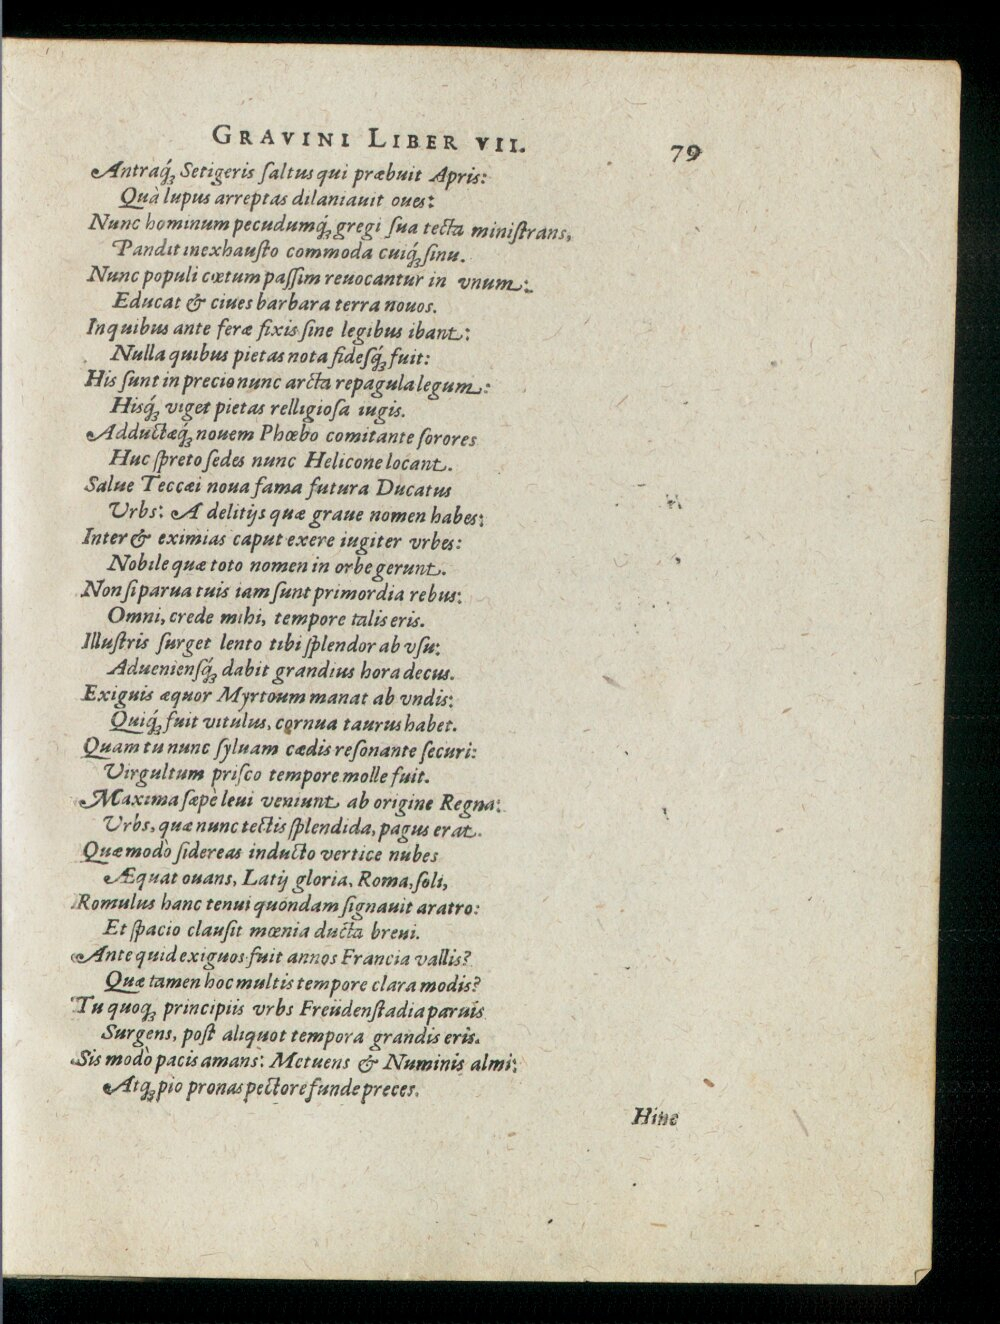 GRAVINI LIBER VII. 79
Antraq́; Setigeris ſaltus qui præbuit Apris:
Quà lupus arreptas dilaniauit oues:
Nunc hominum pecudumq́; gregi ſua tecta miniſtrans,
Pandit inexhauſto commoda cuiq́; ſinu.
Nunc populi cœtum paſſim reuocantur in vnum:
Educat & ciues barbara terra nouos.
In quibus ante feræ fixis ſine legibus ibant:
Nulla quibus pietas nota fideſq́; fuit:
His ſunt in precio nunc arcta repagula legum:
Hisq́; viget pietas relligioſa iugis.
Adductæq́; nouem Phœbo comitante ſorores
Huc ſpreto ſedes nunc Helicone locant.
Salue Teccæi noua fama futura Ducatus
Vrbs: A delitijs quæ graue nomen habes:
Inter & eximias caput exere iugiter vrbes:
Nobile quæ toto nomen in orbe gerunt.
Non ſi parua tuis iam ſunt primordia rebus:
Omni, crede mihi, tempore talis eris.
Illuſtris ſurget lento tibi ſplendor ab vſu:
Adueniensq́; dabit grandius hora decus.
Exiguis æquor Myrtoum manat ab vndis:
Quiq́; fuit vitulus, cornua taurus habet.
Quam tu nunc ſyluam cædis reſonante ſecuri:
Virgultum priſco tempore molle fuit.
Maxima ſæpè leui veniunt ab origine Regna:
Vrbs, quæ nunc tectis ſplendida, pagus erat.
Quæ modò ſidereas inducto vertice nubes
Æquat ouans, Latij gloria, Roma, ſoli,
Romulus hanc tenui quondam ſignauit aratro:
Et ſpacio clauſit mœnia ducta breui.
Ante quid exiguos fuit annos Francia vallis?
Quæ tamen hoc multis tempore clara modis?
Tu quoq; principiis vrbs Freüdenſtadia paruis
Surgens, poſt aliquot tempora grandis eris.
Sis modò pacis amans: Metuens & Numinis almi:
Atq; pio pronas pectore funde preces.
Hinc